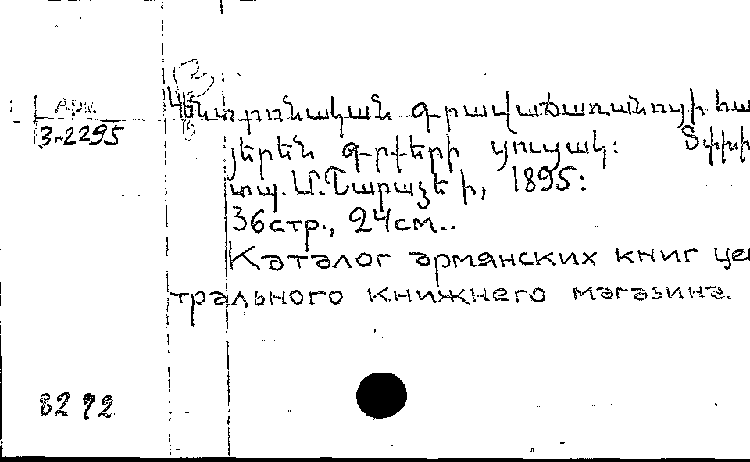 Арм.
3-2295
Կենտրոնական գրավաճառանոցի հա
յերեն գրքերի ցուցակ։ Տփխի
տպ. Մ. Շարաձե ի, 1895։
36стр., 24см..
Каталог армянских книг цен
трального книжнего магазина.
8272